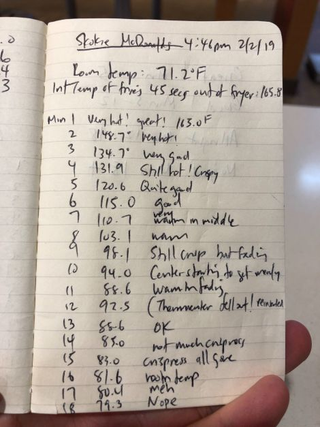 Skokie McDonalds 4:46pm 2/2/19
Room temp: 71.2°F
Int Temp of fries 45 secs out of fryer: 165.8
Min 1 Very hot! great! 163.0F
2 148.7° very hot!
3 134.7° very good
4 131.9 Still hot! Crispy
5 120.6 Quite good
6 115.0 good
7 110.7 very warm in middle
8 103.1 warm
9 98.1 Still crisp but fading
10 94.0 Center starting to get mealy
11 88.6 Warmth fading
12 92.5 (Thermometer fell out! reinserted
13 88.6 OK
14 85.0 not much crispness
15 83.0 crispness all gone
16 81.6 room temp
17 80.4 meh
18 79.3 Nope
.0
6
4
3